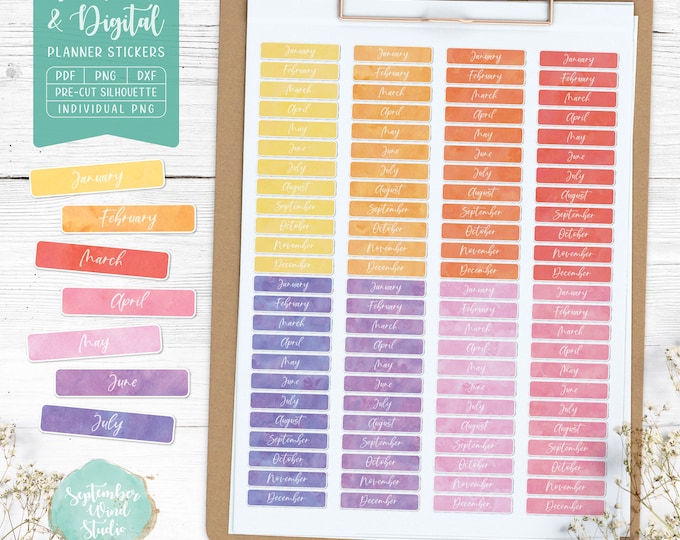 & Digital
PLANNER STICKERS
PDF | PNG | DXF
PRE-CUT SILHOUETTE
INDIVIDUAL PNG
January
February
March
April
May
June
July
September
Wind
Studio
January January January January
February February February February
March March March March
April April April April
May May May May
June June June June
July July July July
August August August August
September September September September
October October October October
November November November November
December December December December
January January January January
February February February February
March March March March
April April April April
May May May May
June June June June
July July July July
August August August August
September September September September
October October October October
November November November November
December December December December